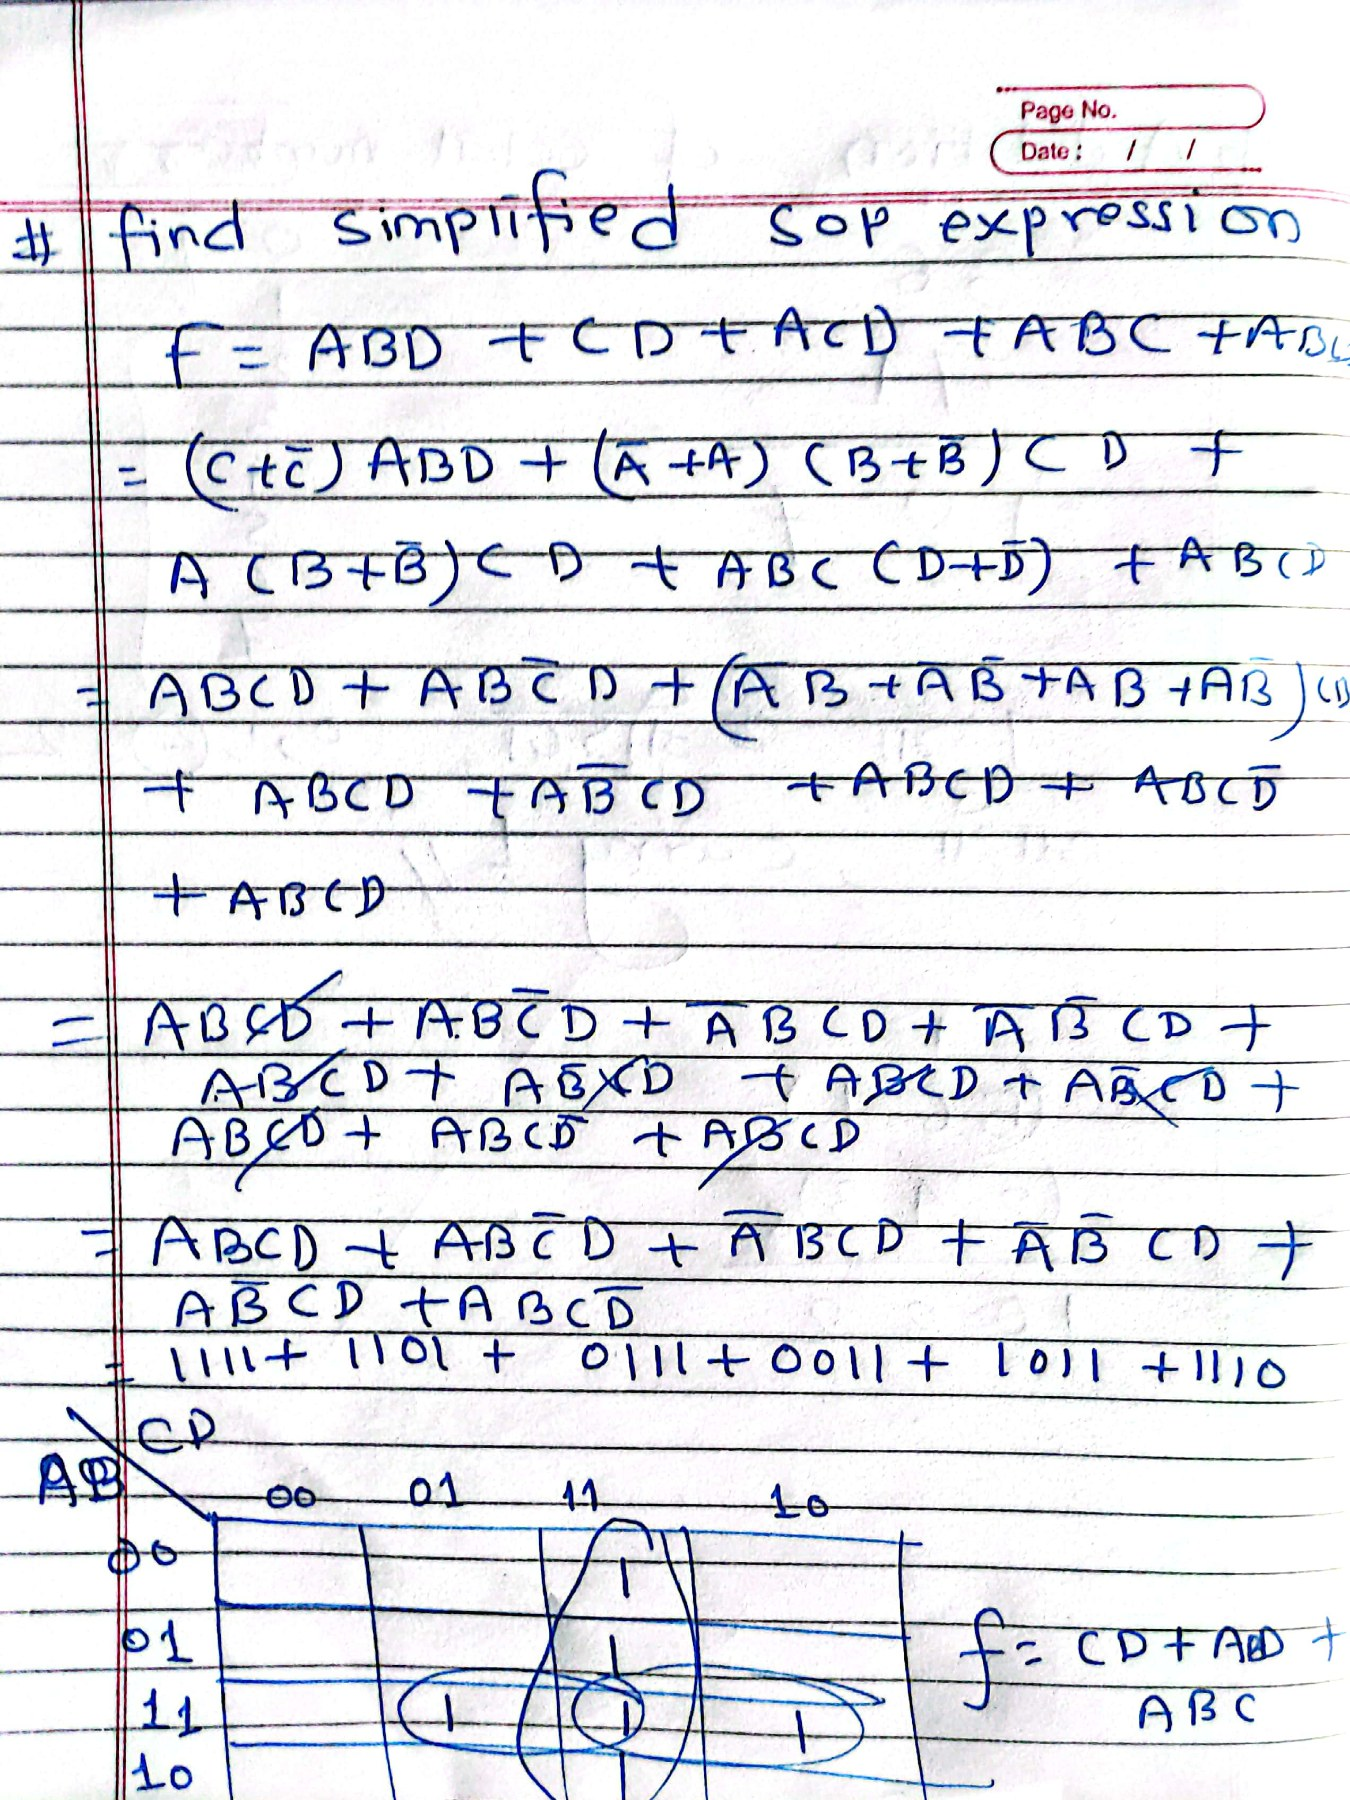 Page No.
Date: / /
# find simplified SOP expression
f = ABD + CD + ACD + ABC +
= (C+C̅) ABD + (A̅+A) (B+B̅) CD +
A (B+B̅) CD + ABC (D+D̅) + ABCD
= ABCD + ABC̅D + (A̅B + A̅B̅ + AB + AB̅) CD
+ ABCD + AB̅CD + ABCD + ABCD̅
+ ABCD
= ABCD + ABC̅D + A̅BCD + A̅B̅CD +
ABCD + AB̅CD + ABCD + AB̅CD +
ABCD + ABCD̅ + ABCD
= ABCD + ABC̅D + A̅BCD + A̅B̅CD +
AB̅CD + ABCD̅
= 1111 + 1101 + 0111 + 0011 + 1011 + 1110
CD
AB
00 01 11 10
00 1
01 1
11 1 1 1
10 1
f = CD + ABD +
ABC